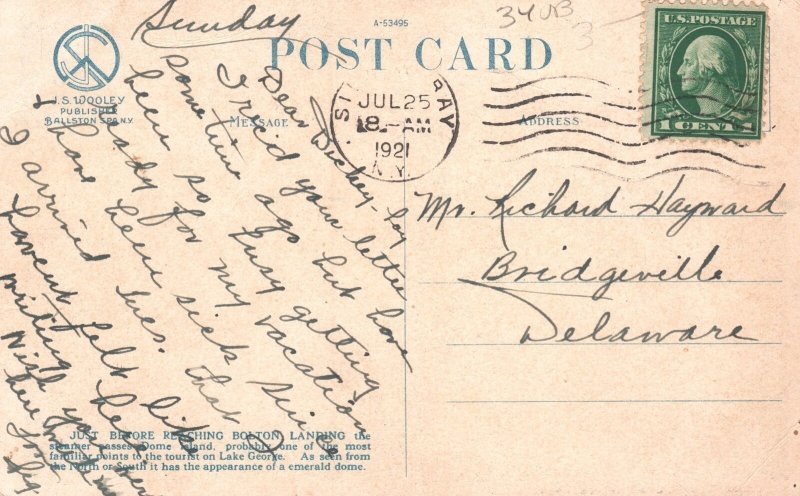 Sunday
A-53495
POST CARD
34UB
3
U.S. POSTAGE
1 CENT 1
J.S. WOOLEY
PUBLISHER
BALLSTON SPA, N.Y.
MESSAGE
ADDRESS
SILVER BAY
JUL 25
8-AM
1921
N.Y.
Dear Dickey-boy
I rec'd your letter
some time ago but have
been so busy getting
ready for my vacation
I have been sick since
I arrived Tues. that I
havent felt like
writing
Wish you were
here
Mr. Richard Hayward
Bridgeville
Delaware
JUST BEFORE REACHING BOLTON LANDING the
steamer passes Dome Island, probably one of the most
familiar points to the tourist on Lake George. As seen from
the North or South it has the appearance of a emerald dome.